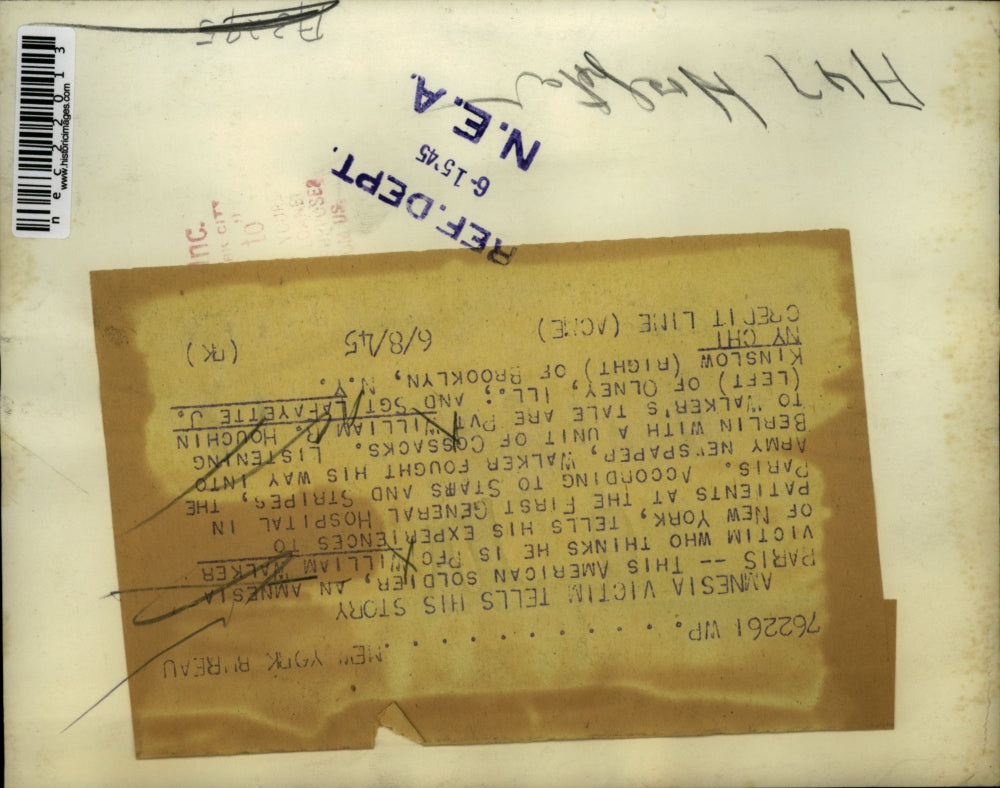 762261 WP. . . . . . . . . . .NEW YORK BUREAU
AMNESIA VICTIM TELLS HIS STORY
PARIS -- THIS AMERICAN SOLDIER, AN AMNESIA
VICTIM WHO THINKS HE IS PFC WILLIAM WALKER
OF NEW YORK, TELLS HIS EXPERIENCES TO
PATIENTS AT THE FIRST GENERAL HOSPITAL IN
PARIS. ACCORDING TO STARS AND STRIPES, THE
ARMY NEWSPAPER, WALKER FOUGHT HIS WAY INTO
BERLIN WITH A UNIT OF COSSACKS. LISTENING
TO WALKER'S TALE ARE PVT WILLIAM R. HOUCHIN
(LEFT) OF OLNEY, ILL.; AND SGT LAFAYETTE J.
KINSLOW (RIGHT) OF BROOKLYN, N.Y.
NY CHI
CREDIT LINE (ACME) 6/8/45 (RK)
REF. DEPT.
6-15'45
N.E.A.
Inc.
CITY
to
US
www.historicimages.com
nec22013